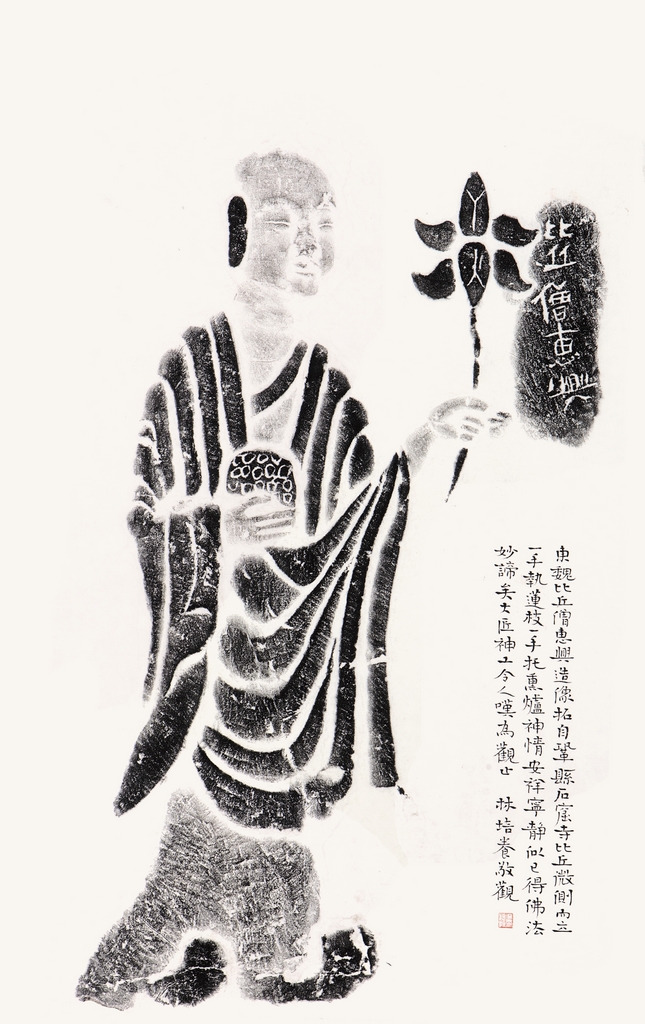 比丘僧惠興
東魏比丘僧惠興造像拓自鞏縣石窟寺比丘微側而立
一手執蓮枝一手托熏爐神情安祥寧靜似已得佛法
妙諦矣大匠神工令人嘆為觀止 林培養敬觀